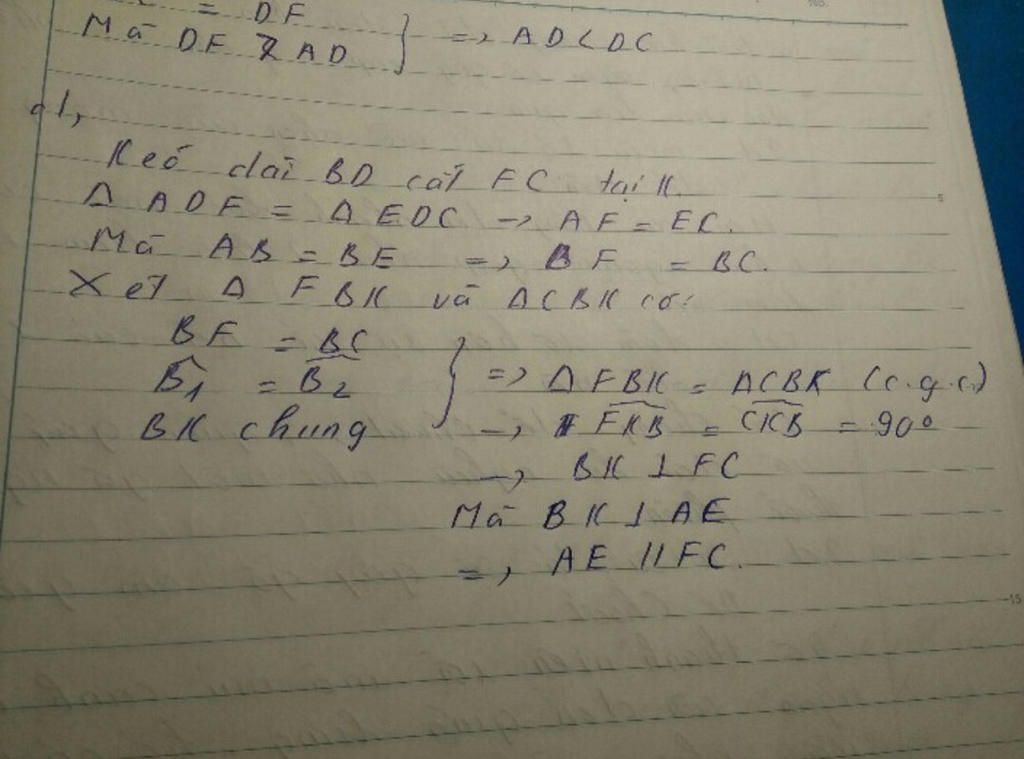 = DF
Mà DF > AD } => AD < DC
d),
Kéo dài BD cắt FC tại K.
Δ ADF = Δ EDC -> AF = EC.
Mà AB = BE => BF = BC.
Xét Δ FBK và ΔCBK có:
BF = BC
B̂1 = B̂2 } => Δ FBK = ΔCBK (c.g.c)
BK chung -> FKB = CKB = 90°
-> BK ⊥ FC
Mà BK ⊥ AE
=> AE // FC.